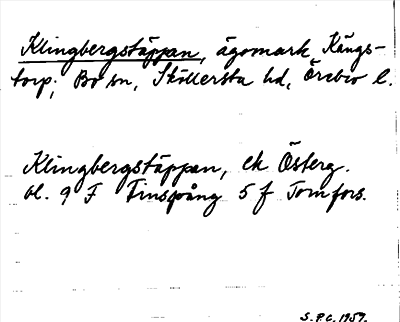 Klingbergstäppan, ägomark Kängs-
torp, Bo sn, Skillersta hd, Örebro l.
Klingbergstäppan, ek Österg.
bl. 9 F Finspång 5 f Tomfors.
S.P.C. 1959.